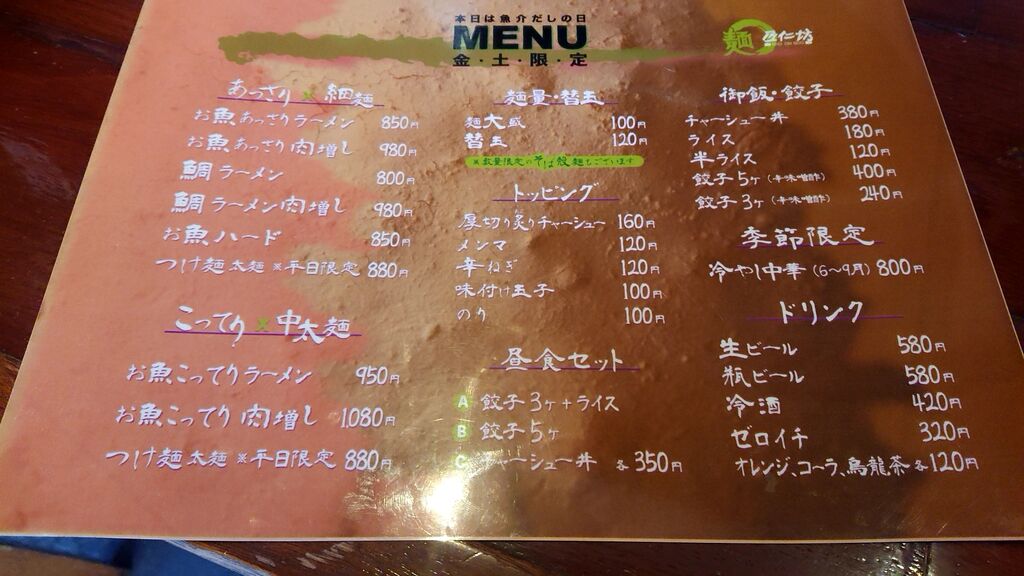 本日は魚介だしの日
MENU
金・土・限・定
麺 仁坊
あっさり×細麺
お魚あっさりラーメン 850円
お魚あっさり肉増し 980円
鯛ラーメン 800円
鯛ラーメン肉増し 980円
お魚ハード 850円
つけ麺太麺 ※平日限定 880円
こってり×中太麺
お魚こってりラーメン 950円
お魚こってり肉増し 1,080円
つけ麺太麺 ※平日限定 880円
麺量・替玉
麺大盛 100円
替玉 120円
※数量限定のそば殻麺もございます
トッピング
厚切り炙りチャーシュー 160円
メンマ 120円
辛ねぎ 120円
味付け玉子 100円
のり 100円
昼食セット
A 餃子3ヶ+ライス
B 餃子5ヶ
C チャーシュー丼 各350円
御飯・餃子
チャーシュー丼 380円
ライス 180円
半ライス 120円
餃子5ヶ 400円
餃子3ヶ 240円
季節限定
冷やし中華(6〜9月) 800円
ドリンク
生ビール 580円
瓶ビール 580円
冷酒 420円
ゼロイチ 320円
オレンジ、コーラ、烏龍茶 各120円